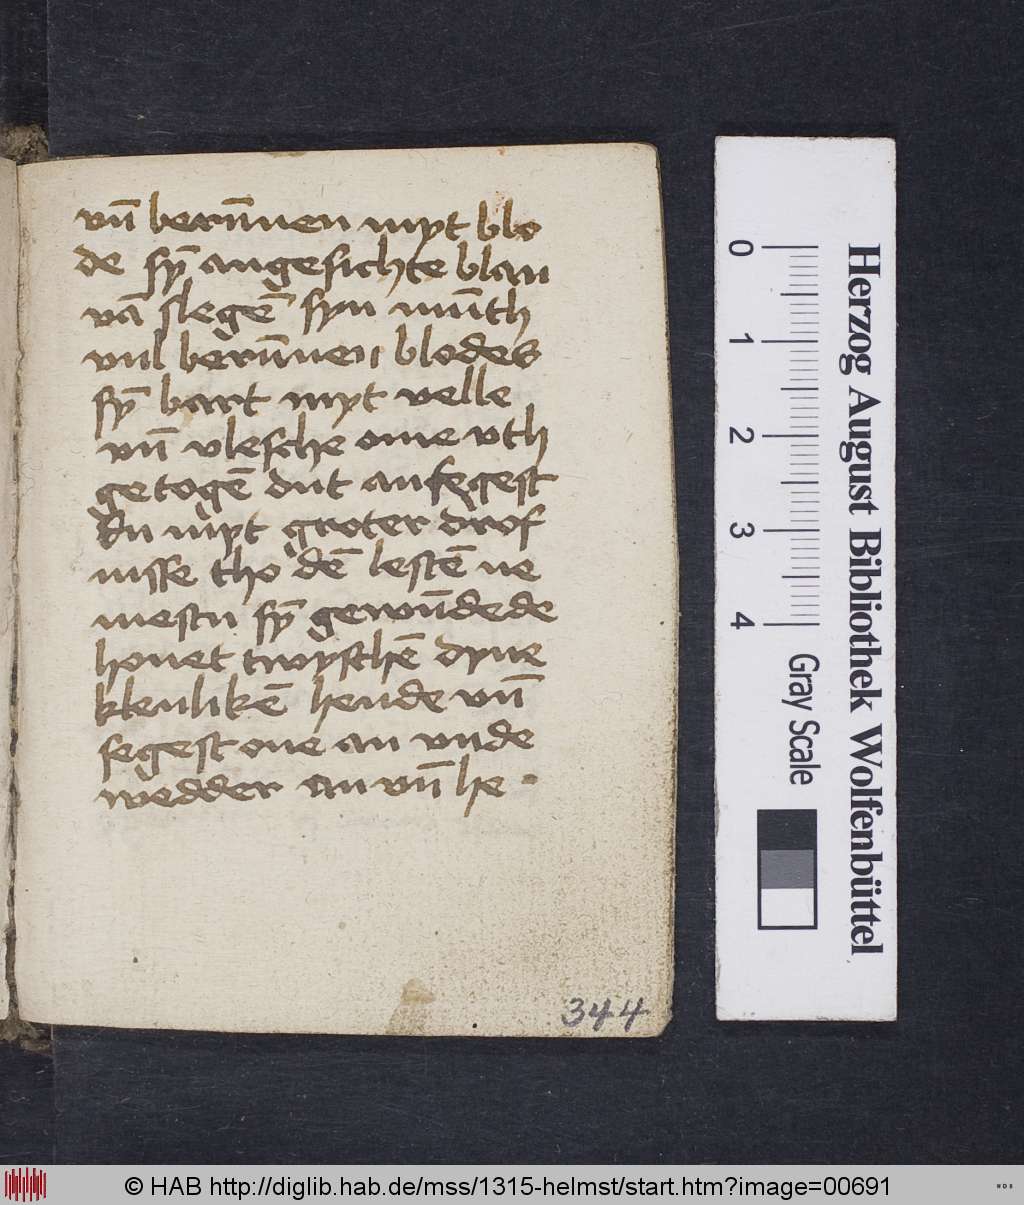 vn̄ berūnen myt blo
de sȳ angesichte blau
vā slegē syn mūth
vul berūnen blodes
sȳ bart myt velle
vn̄ vlesche ome vth
getogē dut ansegest
du myt groter drof
nisse tho dē lestē ne
mestu sȳ gewūdede
houet twyschē dyne
klenlikē hende vn̄
segest one an vnde
wedder an vn̄ he ·
344
Herzog August Bibliothek Wolfenbüttel
0 1 2 3 4
Gray Scale
© HAB http://diglib.hab.de/mss/1315-helmst/start.htm?image=00691